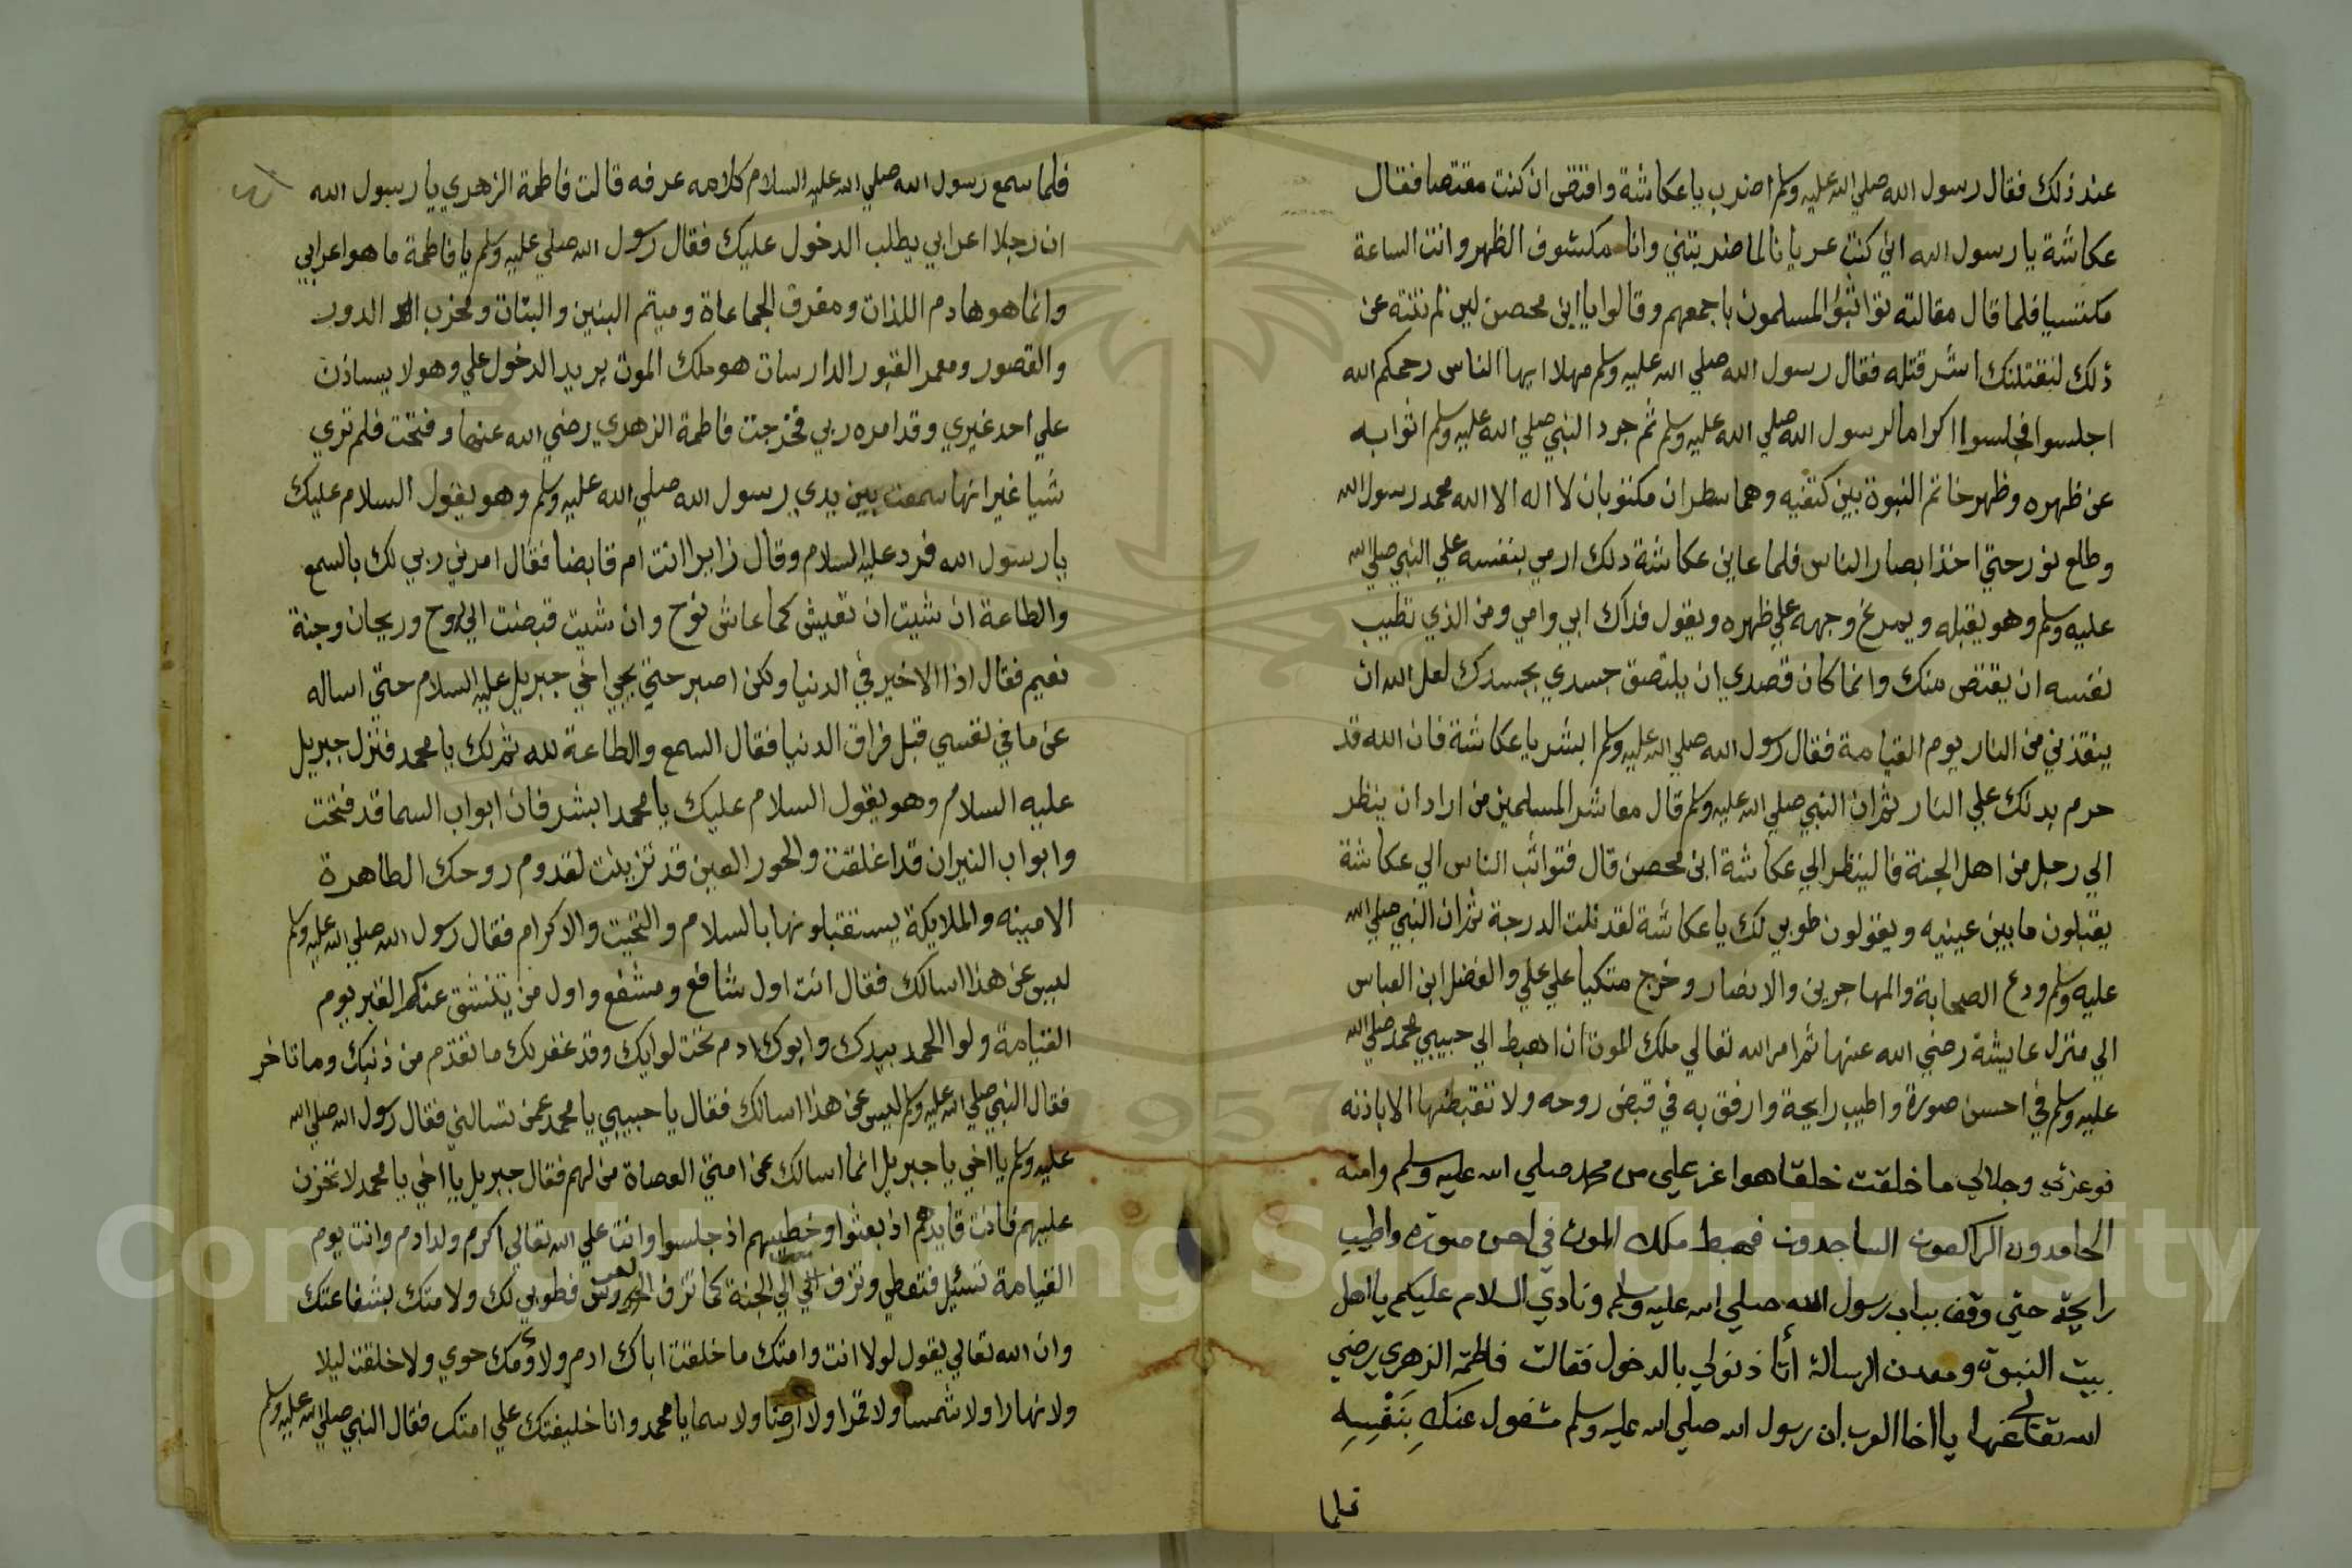 عند ذلك فقال رسول الله صلي الله عليه وسلم اضرب يا عكاشة واقتص ان كنت مقتصا فقال
عكاشة يا رسول الله اني كنت عريانا لما ضربتني وانا مكشوف الظهر وانت الساعة
مكتسيا فلما قال مقالته تواثبؤ المسلمون باجمعهم وقالوا يا ابن محصن لين لم تنته عن
ذلك لنقتلنك اشر قتله فقال رسول الله صلي الله عليه وسلم مهلا ايها الناس رحمكم الله
اجلسوا فجلسوا اكراما لرسول الله صلي الله عليه وسلم ثم جرد النبي صلي الله عليه وسلم اثوابه
عن ظهره وظهر خاتم النبوة بين كتفيه وهما سطران مكتوبان لا اله الا الله محمد رسول الله
وطلع نور حتي اخذ ابصار الناس فلما عاين عكاشة ذلك ارمي بنفسه علي النبي صلي الله
عليه وسلم وهو يقبله ويمرغ وجهه علي ظهره ويقول فداك ابي وامي ومن الذي تطيب
نفسه ان يقتص منك وانما كان قصدي ان يلتصق جسدي بجسدك لعل الله ان
ينقذني من النار يوم القيامة فقال رسول الله صلي الله عليه وسلم ابشر يا عكاشة فان الله قد
حرم بدنك علي النار ثم ان النبي صلي الله عليه وسلم قال معاشر المسلمين من اراد ان ينظر
الي رجل من اهل الجنة فالينظر الي عكاشة ابن محصن قال فتواثب الناس الي عكاشة
يقبلون ما بين عينيه ويقولون طوبي لك يا عكاشة لقد نلت الدرجة ثم ان النبي صلي الله
عليه وسلم ودع الصحابة والمهاجرين والانصار وخرج متكيا علي علي والفضل ابن العباس
الي منزل عايشة رضي الله عنها ثم امر الله تعالي ملك الموت ان اهبط الي حبيبي محمد صلي الله
عليه وسلم في احسن صورة واطيب رايحة وارفق به في قبض روحه ولا تقبضها الا باذنه
فوعزتي وجلالي ما خلقت خلقا هو اعز علي من محمد صلي الله عليه وسلم وامته
الحامدون الراكعون الساجدون فهبط ملك الموت في احسن صورة واطيب
رايحة حتي وقف بباب رسول الله صلي الله عليه وسلم ونادي السلام عليكم يا اهل
بيت النبوة ومعدن الرسالة أتاذنولي بالدخول فقالت فاطمة الزهري رضي
الله تعالي عنها يا اخا العرب ان رسول الله صلي الله عليه وسلم مشغول عنك بنفسه
فلما
فلما سمع رسول الله صلي الله عليه السلام كلامه عرفه قالت فاطمة الزهري يا رسول الله
ان رجلا اعرابي يطلب الدخول عليك فقال رسول الله صلي عليه وسلم يا فاطمة ما هو اعرابي
وانما هو هادم اللذات ومفرق الجماعاة وميتم البنين والبنات ومخرب الدور
والقصور ومعمر القبور الدارسات هو ملك الموت يريد الدخول علي وهو لا يساذن
علي احد غيري وقد امره ربي فخرجت فاطمة الزهري رضي الله عنها وفتحت فلم تري
شيا غير انها سمعت بين يدي رسول الله صلي الله عليه وسلم وهو يقول السلام عليك
يا رسول الله فرد عليه السلام وقال زايرا انت ام قابضا فقال امرني ربي لك بالسمع
والطاعة ان شيت ان تعيش كما عاش نوح وان شيت قبضت الي روح وريحان وجنة
نعيم فقال اذا الاخير في الدنيا ولكن اصبر حتي يجي اخي جبريل عليه السلام حتي اساله
عن ما في نفسي قبل فراق الدنيا فقال السمع والطاعة لله ثم لك يا محمد فنزل جبريل
عليه السلام وهو يقول السلام عليك يا محمد ابشر فان ابواب السما قد فتحت
وابواب النيران قد اغلقت والحور العين قد تزينت لقدوم روحك الطاهرة
الامينه والملايكة يستقبلونها بالسلام والتحيت والاكرام فقال رسول الله صلي الله عليه وسلم
ليس عن هذا اسالك فقال انت اول شافع ومشفع واول من ينشق عنكم القبر يوم
القيامة ولوا الحمد بيدك وابوك ادم تحت لوايك وقد غفر لك ما تقدم من ذنبك وما تاخر
فقال النبي صلي الله عليه وسلم ليس عن هذا اسالك فقال يا حبيبي يا محمد عمن تسالني فقال رسول الله صلي الله
عليه وسلم يا اخي يا جبريل انما اسالك عن امتي العصاة من لهم فقال جبريل يا اخي يا محمد لا تحزن
عليهم فانت قايدهم اذ بعثوا وخطيبهم اذ جلسوا وانت علي الله تعالي اكرم ولد ادم وانت يوم
القيامة تسئيل فتعطي وتزف الي الجنة كما تزف العروس فطوبي لك ولامتك بشفاعتك
وان الله تعالي يقول لولا انت وامتك ما خلقت اباك ادم ولا وُمك حوي ولا خلقت ليلا
ولا نهارا ولا شمسا ولا قمرا ولا ارضا ولا سما يا محمد وانا خليفتك علي امتك فقال النبي صلي الله عليه وسلم
Copyright © King Saud University
1957